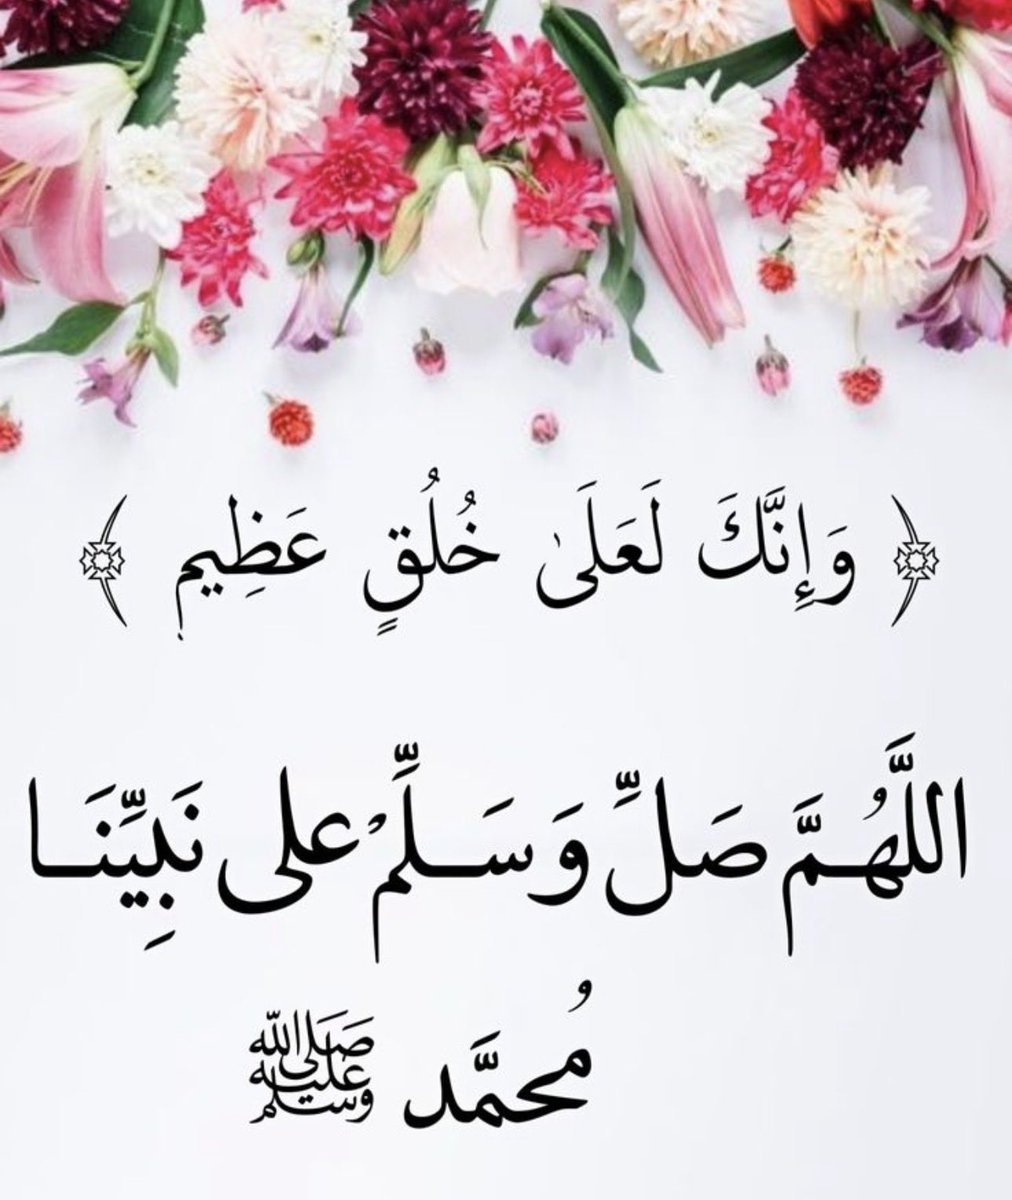 ﴿ وَإِنَّكَ لَعَلَىٰ خُلُقٍ عَظِيمٍ ﴾
اللَّهُمَّ صَلِّ وَسَلِّمْ على نَبِيِّنَا
مُحمَّد ﷺ